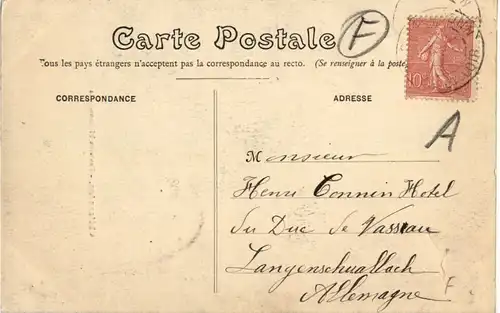 Carte Postale
F
Tous les pays étrangers n'acceptent pas la correspondance au recto. (Se renseigner à la poste)
CORRESPONDANCE
ADRESSE
10
A
Monsieur
Henri Connin Hotel
du Duc de Nassau
Langenschwallach
Allemagne
F